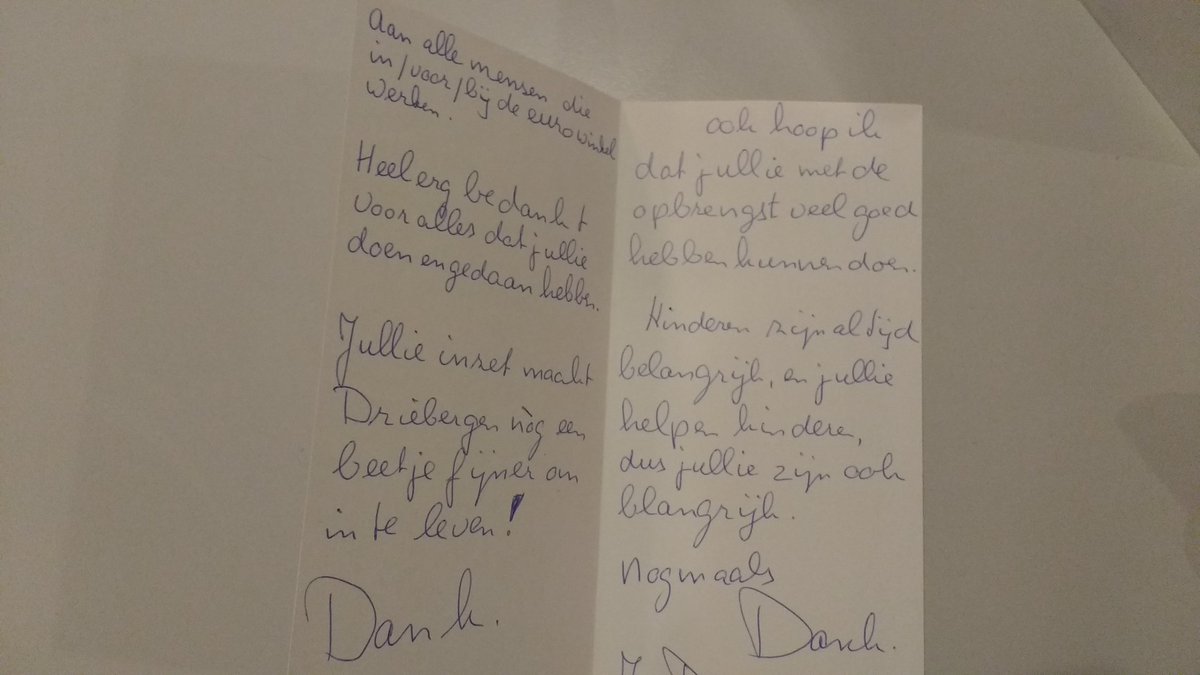 Aan alle mensen die
in/voor/bij de eurowinkel
werken.
Heel erg bedankt
voor alles dat jullie
doen en gedaan hebben.
Jullie inzet maakt
Driebergen nòg een
beetje fijner om
in te leven!
Dank.
ook hoop ik
dat jullie met de
opbrengst veel goed
hebben kunnen doen.
Kinderen zijn altijd
belangrijk, en jullie
helpen kinderen,
dus jullie zijn ook
blangrijk.
Nogmaals
Dank.